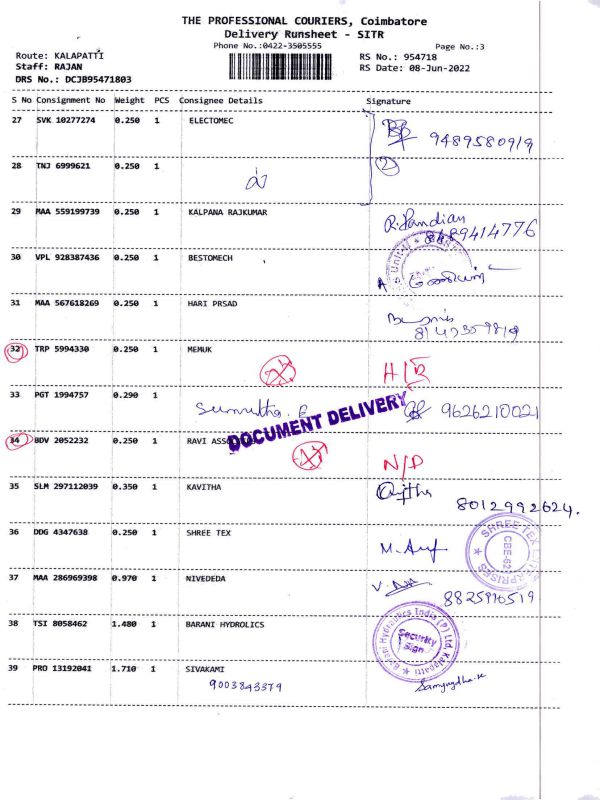 THE PROFESSIONAL COURIERS, Coimbatore
Delivery Runsheet - SITR
Phone No.:0422-3505555
Page No.:3
Route: KALAPATTI
RS No.: 954718
Staff: RAJAN
RS Date: 08-Jun-2022
DRS No.: DCJB95471803
S No Consignment No Weight PCS Consignee Details Signature
27 SVK 10277274 0.250 1 ELECTOMEC
28 TNJ 6999621 0.250 1
2
29 MAA 559199739 0.250 1 KALPANA RAJKUMAR
R. Pandian
30 VPL 928387436 0.250 1 BESTOMECH
31 MAA 567618269 0.250 1 HARI PRSAD
32 TRP 5994330 0.250 1 MEMUK
33 PGT 1994757 0.290 1
9626210021
DOCUMENT DELIVERY
34 BDV 2052232 0.250 1 RAVI
N/D
35 SLM 297112039 0.350 1 KAVITHA
8012992624.
36 DDG 4347638 0.250 1 SHREE TEX
SHREE TEX ENTERPRISES
CBE-62
37 MAA 286969398 0.970 1 NIVEDEDA
38 TSI 8058462 1.480 1 BARANI HYDROLICS
Barani Hydraulics India (P) Ltd, Kalapatti
Security
Sign
39 PRO 13192041 1.710 1 SIVAKAMI
9003843379